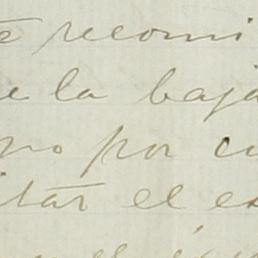 te recomi
e la baja
no por cu
itar el es
y el